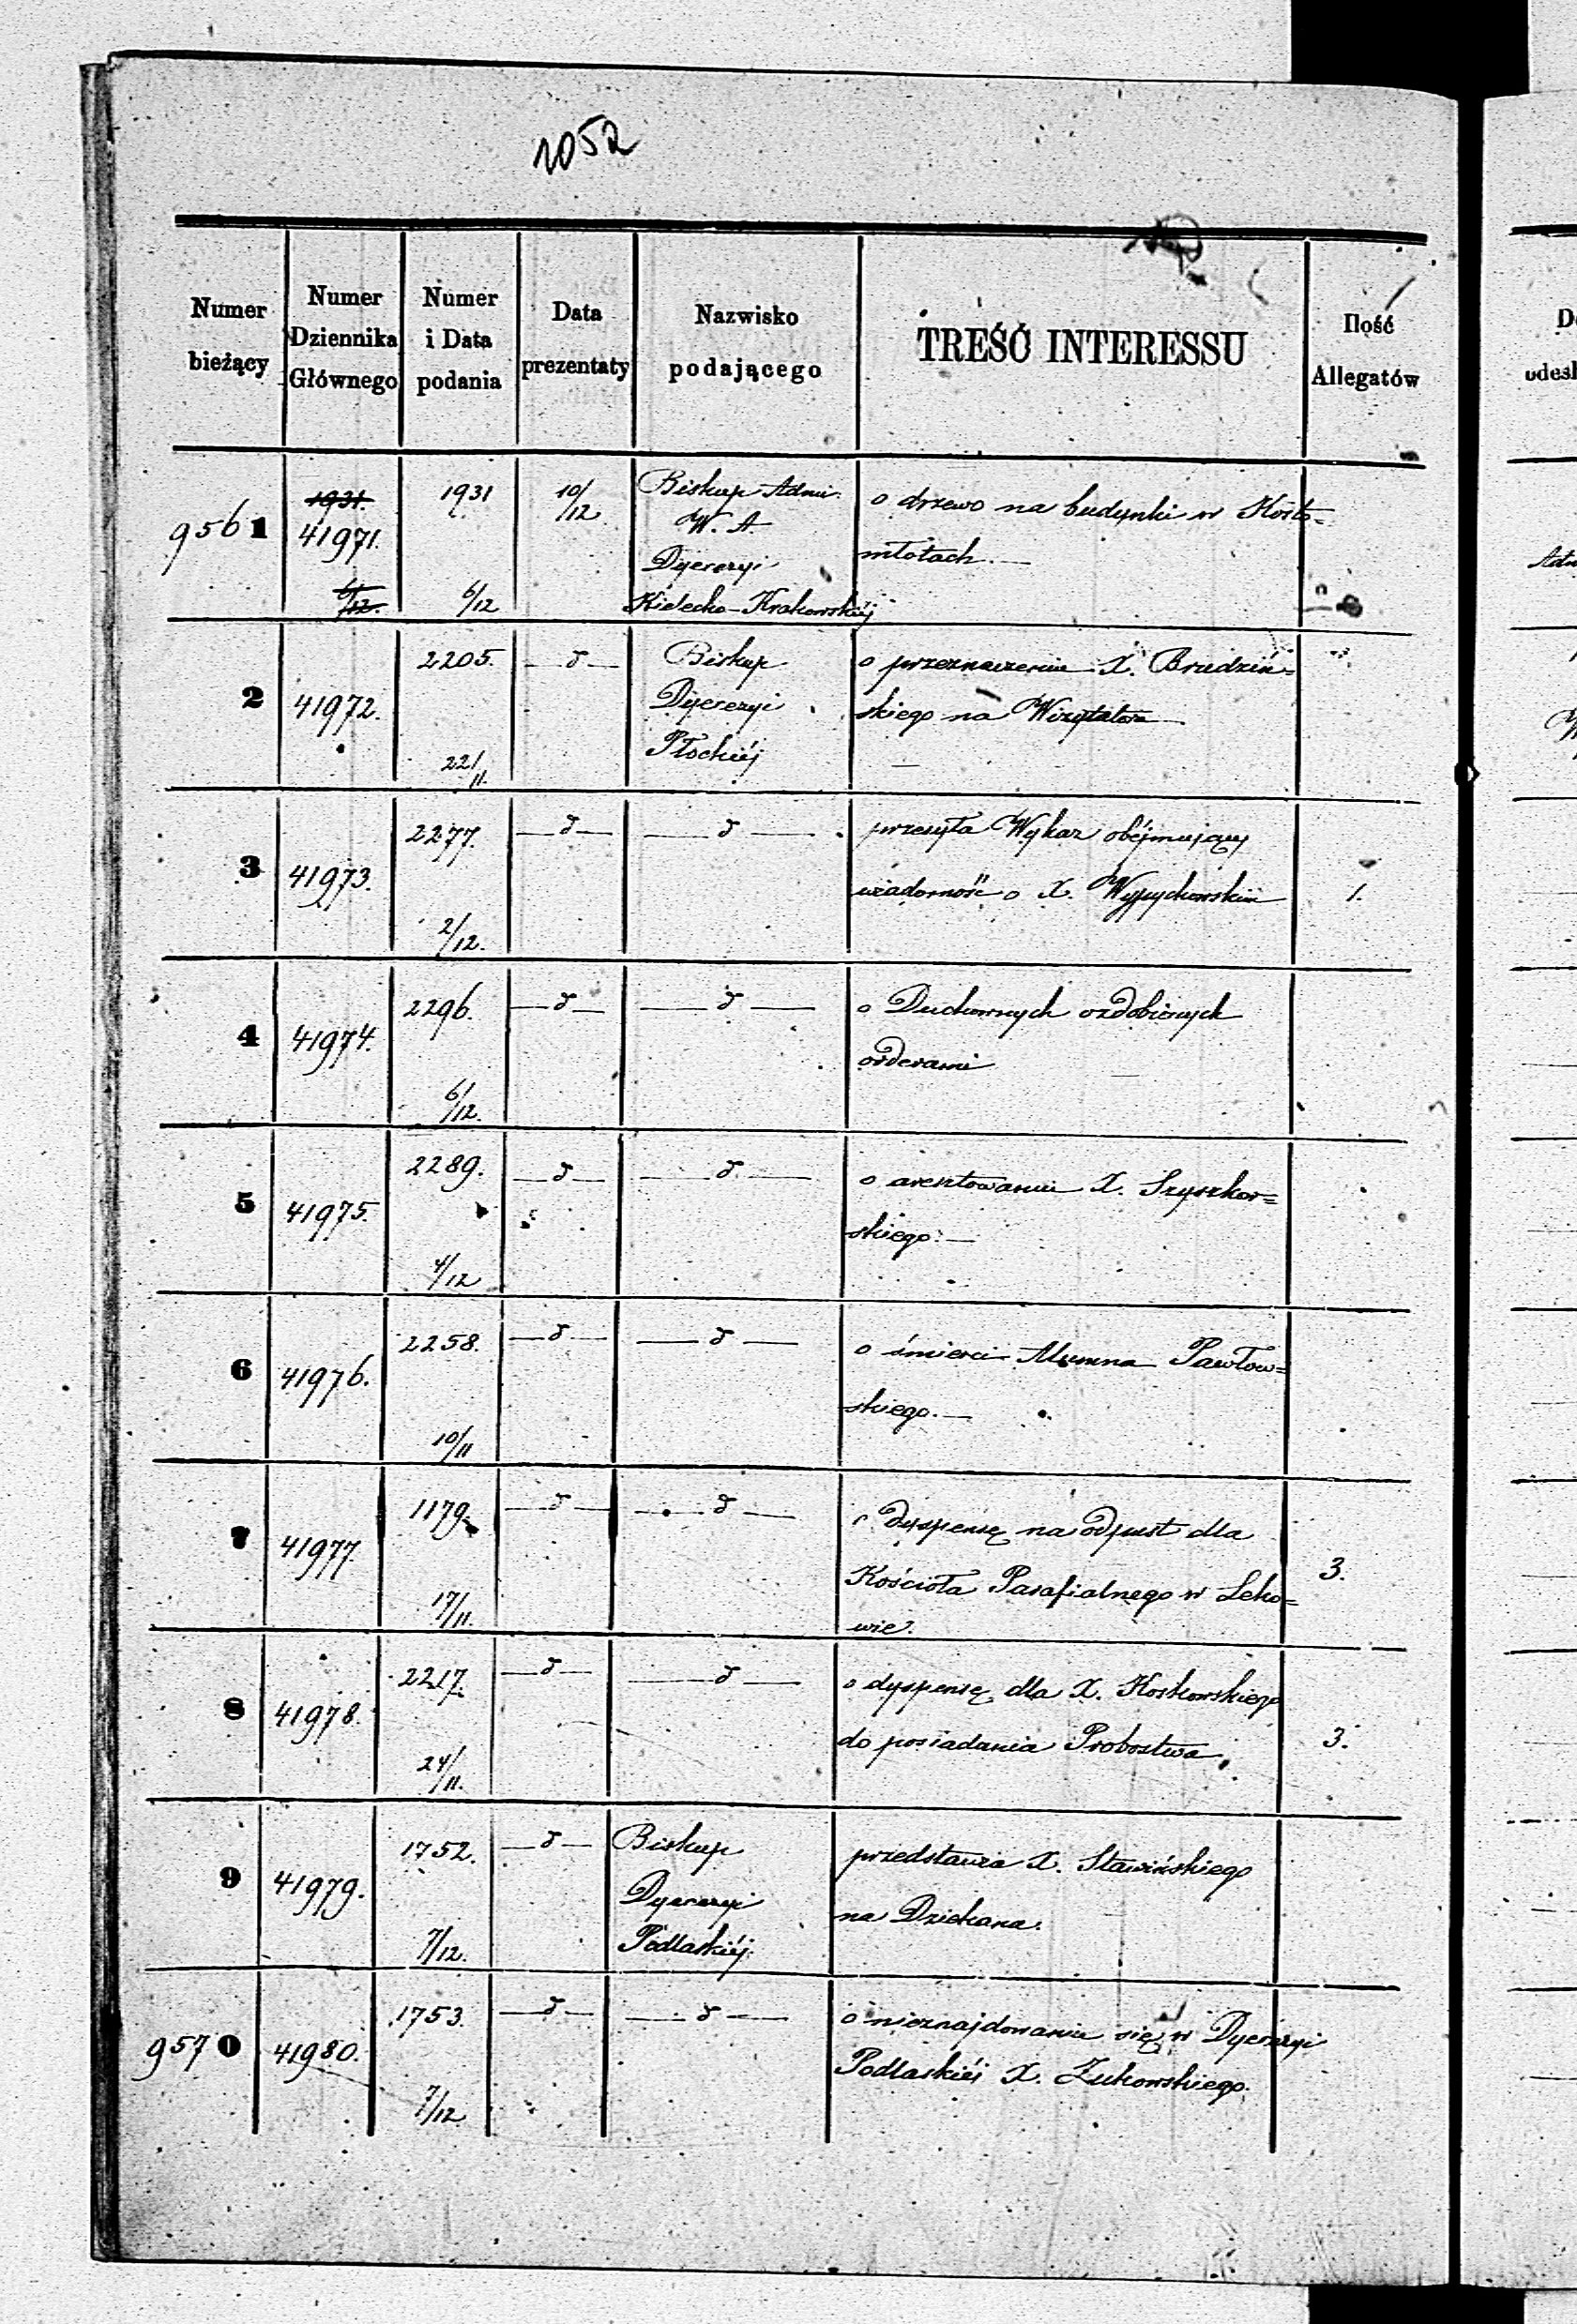 1052
Numer bieżący
Numer Dziennika Głównego
Numer i Data podania
Data prezentaty
Nazwisko podającego
TREŚĆ INTERESSU
Ilość Allegatów
9561
1931.
41971.
6/12.
1931
6/12
10/12
Biskup Admi.
W. A.
Dyecezyi
Kielecko-Krakowskiéj
o drzewo na budynki w Kosto=
młotach.—
2
41972.
2205.
22/11.
—d—
Biskup
Dyecezyi
Płockiéj
o przeznaczeniu X. Brudziń=
skiego na Wizytatora
3
41973.
2277.
2/12.
—d—
—d—
przesyła Wykaz obéjmujący
wiadomość o X.
1.
4
41974.
2296.
6/12.
—d—
—d—
o Duchownych ozdobionych
orderami
5
41975.
2289.
4/12
—d—
—d—
o aresztowaniu X. Szyszkow=
skiego.—
6
41976.
2258.
10/11
—d—
—d—
o śmierci Alumna Pawłow=
skiego.—
7
41977.
1179.
17/11.
—d—
—d—
o dyspensę na odpust dla
Kościoła Parafialnego w Leko=
wie.
3.
8
41978.
2217.
24/11.
—d—
—d—
o dyspensę dla X. Koskowskiego
do posiadania Probostwa
3.
9
41979.
1752.
7/12.
—d—
Biskup
Dyecezyi
Podlaskiéj
przedstawia X. Sławińskiego
na Dziekana.
9570
41980.
1753.
7/12
—d—
—d—
o nieznajdowaniu się w Dyecezyi
Podlaskiéj X. Żukowskiego.